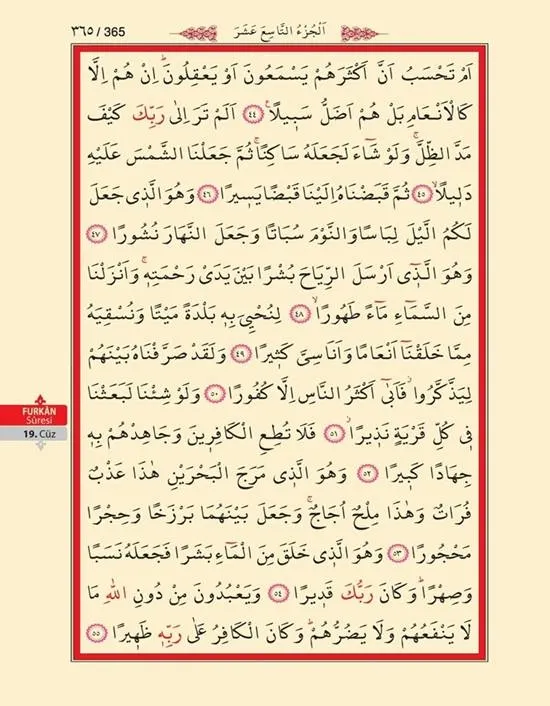 ٣٦٥ / 365
اَلْجُزْءُ التَّاسِعَ عَشَرَ
اَمْ تَحْسَبُ اَنَّ اَكْثَرَهُمْ يَسْمَعُونَ اَوْ يَعْقِلُونَۜ اِنْ هُمْ اِلَّا
كَالْاَنْعَامِ بَلْ هُمْ اَضَلُّ سَب۪يلًا۟ ٤٤ اَلَمْ تَرَ اِلٰى رَبِّكَ كَيْفَ
مَدَّ الظِّلَّۚ وَلَوْ شَٓاءَ لَجَعَلَهُ سَاكِنًاۚ ثُمَّ جَعَلْنَا الشَّمْسَ عَلَيْهِ
دَل۪يلًاۙ ٤٥ ثُمَّ قَبَضْنَاهُ اِلَيْنَا قَبْضًا يَس۪يرًا ٤٦ وَهُوَ الَّذ۪ي جَعَلَ
لَكُمُ الَّيْلَ لِبَاسًا وَالنَّوْمَ سُبَاتًا وَجَعَلَ النَّهَارَ نُشُورًا ٤٧
وَهُوَ الَّذ۪ٓي اَرْسَلَ الرِّيَاحَ بُشْرًا بَيْنَ يَدَيْ رَحْمَتِه۪ۚ وَاَنْزَلْنَا
مِنَ السَّمَٓاءِ مَٓاءً طَهُورًاۙ ٤٨ لِنُحْيِيَ بِه۪ بَلْدَةً مَيْتًا وَنُسْقِيَهُ
مِمَّا خَلَقْنَٓا اَنْعَامًا وَاَنَاسِيَّ كَث۪يرًا ٤٩ وَلَقَدْ صَرَّفْنَاهُ بَيْنَهُمْ
لِيَذَّكَّرُواۘ فَاَبٰٓى اَكْثَرُ النَّاسِ اِلَّا كُفُورًا ٥٠ وَلَوْ شِئْنَا لَبَعَثْنَا
ف۪ي كُلِّ قَرْيَةٍ نَذ۪يرًاۘ ٥١ فَلَا تُطِعِ الْكَافِر۪ينَ وَجَاهِدْهُمْ بِه۪
جِهَادًا كَب۪يرًا ٥٢ وَهُوَ الَّذ۪ي مَرَجَ الْبَحْرَيْنِ هٰذَا عَذْبٌ
فُرَاتٌ وَهٰذَا مِلْحٌ اُجَاجٌۚ وَجَعَلَ بَيْنَهُمَا بَرْزَخًا وَحِجْرًا
مَحْجُورًا ٥٣ وَهُوَ الَّذ۪ي خَلَقَ مِنَ الْمَٓاءِ بَشَرًا فَجَعَلَهُ نَسَبًا
وَصِهْرًاۜ وَكَانَ رَبُّكَ قَد۪يرًا ٥٤ وَيَعْبُدُونَ مِنْ دُونِ اللّٰهِ مَا
لَا يَنْفَعُهُمْ وَلَا يَضُرُّهُمْۜ وَكَانَ الْكَافِرُ عَلٰى رَبِّه۪ ظَه۪يرًا ٥٥
FURKÂN
Sûresi
19. Cüz